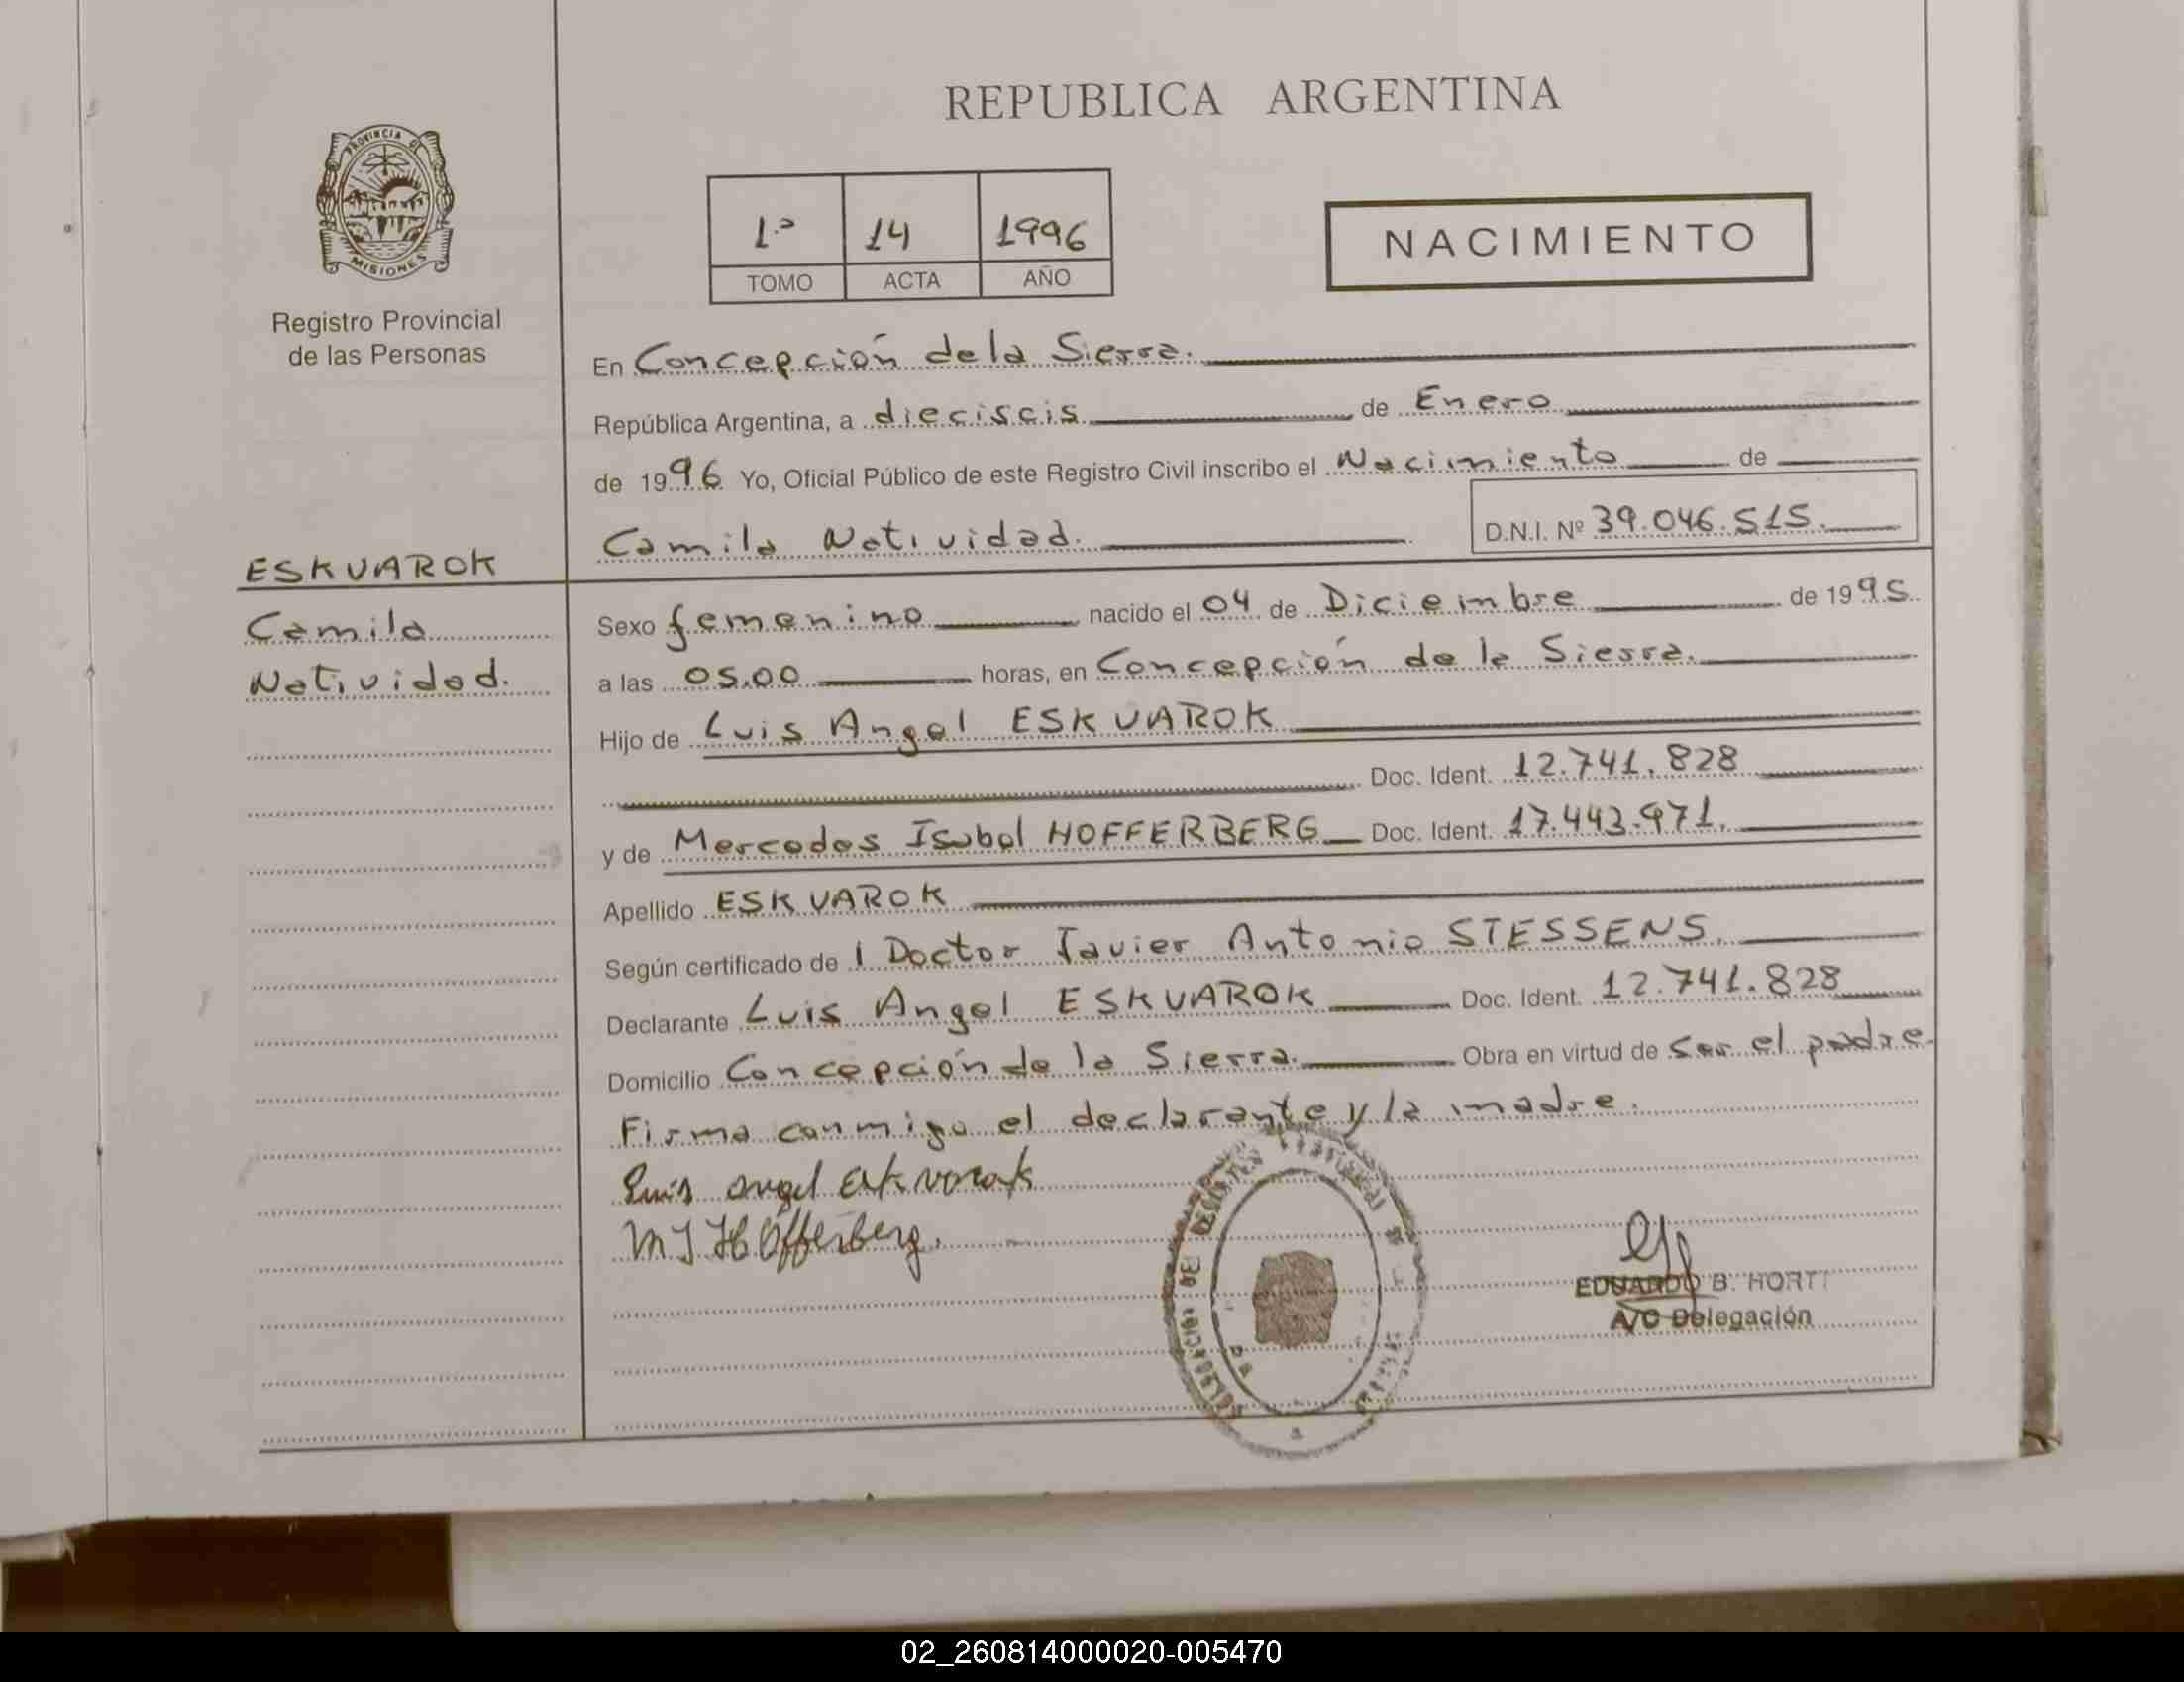 REPUBLICA ARGENTINA
PROVINCIA D
MISIONES
Registro Provincial
de las Personas
1º 14 1996
TOMO ACTA AÑO
NACIMIENTO
En Concepción de la Sierra.
República Argentina, a dieciseis de Enero
de 1996 Yo, Oficial Público de este Registro Civil inscribo el Nacimiento de
Camila Natividad. D.N.I. Nº 39.046.515.
ESKUAROK
Camila
Natividad.
Sexo femenino nacido el 04 de Diciembre de 1995
a las 05.00 horas, en Concepción de la Sierra.
Hijo de Luis Angel ESKUAROK
Doc. Ident. 12.741.828
y de Mercedes Isabel HOFFERBERG Doc. Ident. 17.443.971.
Apellido ESKUAROK
Según certificado de l Doctor Javier Antonio STESSENS.
Declarante Luis Angel ESKUAROK Doc. Ident. 12.741.828
Domicilio Concepción de la Sierra. Obra en virtud de ser el padre.
Firma conmigo el declarante y la madre.
Luis angel
M I Hofferberg.
EDUARDO B. HORT
A/C Delegación
02_260814000020-005470